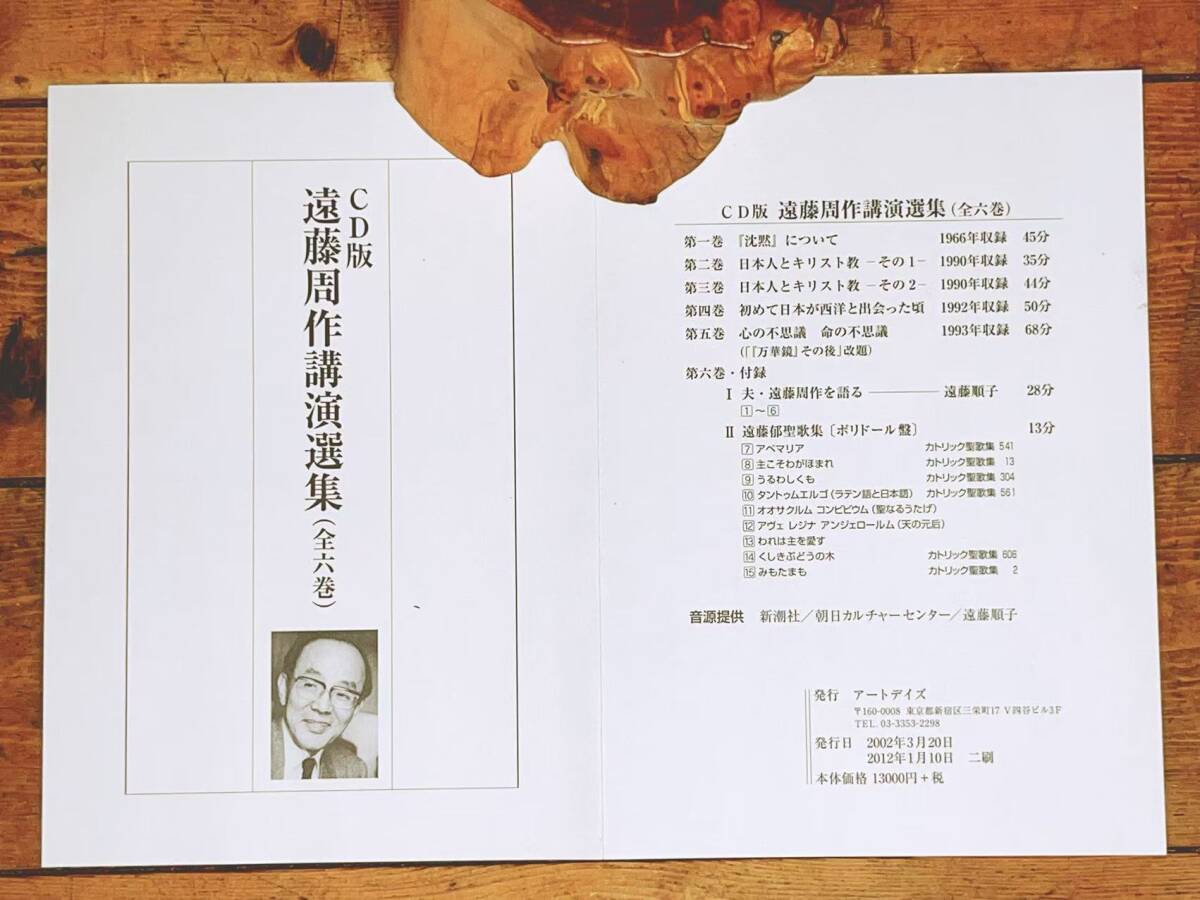 CD版
遠藤周作講演選集(全六巻)
CD版 遠藤周作講演選集(全六巻)
第一巻 『沈黙』について 1966年収録 45分
第二巻 日本人とキリスト教 −その1− 1990年収録 35分
第三巻 日本人とキリスト教 −その2− 1990年収録 44分
第四巻 初めて日本が西洋と出会った頃 1992年収録 50分
第五巻 心の不思議 命の不思議 1993年収録 68分
(「『万華鏡』その後」改題)
第六巻・付録
Ⅰ 夫・遠藤周作を語る ――― 遠藤順子 28分
1〜6
Ⅱ 遠藤郁聖歌集〔ポリドール盤〕 13分
7 アベマリア カトリック聖歌集 541
8 主こそわがほまれ カトリック聖歌集 13
9 うるわしくも カトリック聖歌集 304
10 タントゥムエルゴ(ラテン語と日本語) カトリック聖歌集 561
11 オオサクルム コンビビウム(聖なるうたげ)
12 アヴェ レジナ アンジェロールム(天の元后)
13 われは主を愛す
14 くしきぶどうの木 カトリック聖歌集 606
15 みもたまも カトリック聖歌集 2
音源提供 新潮社/朝日カルチャーセンター/遠藤順子
発行 アートデイズ
〒160-0008 東京都新宿区三栄町17 V四谷ビル3F
TEL. 03-3353-2298
発行日 2002年3月20日
2012年1月10日 二刷
本体価格 13000円+税